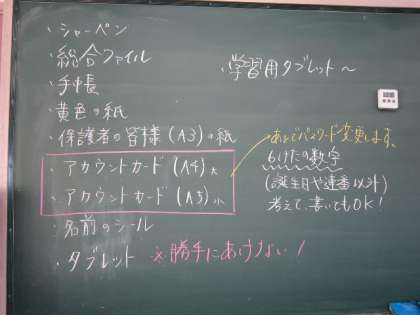 ・シャーペン
・総合ファイル
・手帳
・黄色の紙
・保護者の皆様(A3)の紙
・アカウントカード(A4)大
・アカウントカード(A5)小
・名前のシール
・タブレット ※勝手にあけない!
・学習用タブレット〜
あとでパスワード変更します。
6けたの数字
(誕生日や連番以外)
考えて、書いてもOK!